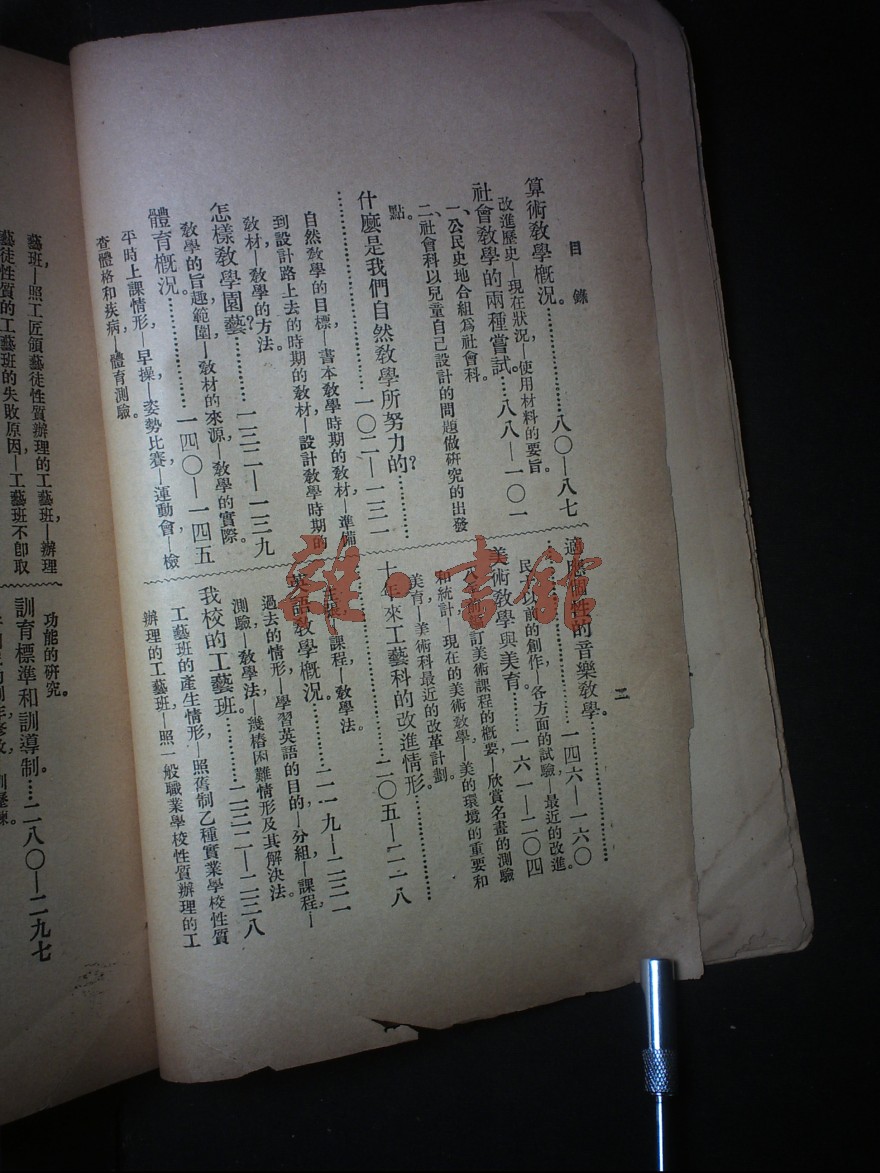 目錄
二
算術教學概況。………………八〇—八七
改進歷史—現在狀況—使用材料的要旨。
社會教學的兩種嘗試。……八八—一〇一
一、公民史地合組爲社會科。
二、社會科以兒童自己設計的問題做研究的出發
點。
什麼是我們自然教學所努力的?
………………一〇二—一三一
自然教學的目標—書本教學時期的教材—準備
到設計路上去的時期的教材—設計教學時期的
教材—教學的方法。
怎樣教學園藝?…………一三二—一三九
教學的旨趣範圍—教材的來源—教學的實際。
體育概況。………………一四〇—一四五
平時上課情形—早操—姿勢比賽—運動會—檢
查體格和疾病—體育測驗。
適應個性的音樂教學。…………
………………一四六—一六〇
民一以前的創作—各方面的試驗—最近的改進。
美術教學與美育。……一六一—二〇四
訂美術課程的概要—欣賞名畫的測驗
和統計,現在的美術教學,美的環境的重要和
美育,美術科最近的改革計劃。
十年來工藝科的改進情形。…………
………………二〇五—二一八
課程—教學法。
英語教學概況。…………二一九—二三一
過去的情形—學習英語的目的—分組—課程—
測驗,教學法—幾樁困難情形及其解決法。
我校的工藝班。…………二三二—二三八
工藝班的產生情形—照舊制乙種實業學校性質
辦理的工藝班—照一般職業學校性質辦理的工
藝班—照工匠領藝徒性質辦理的工藝班—辦理
藝徒性質的工藝班的失敗原因—工藝班不卽取
功能的研究。
訓育標準和訓導制。…二八〇—二九七